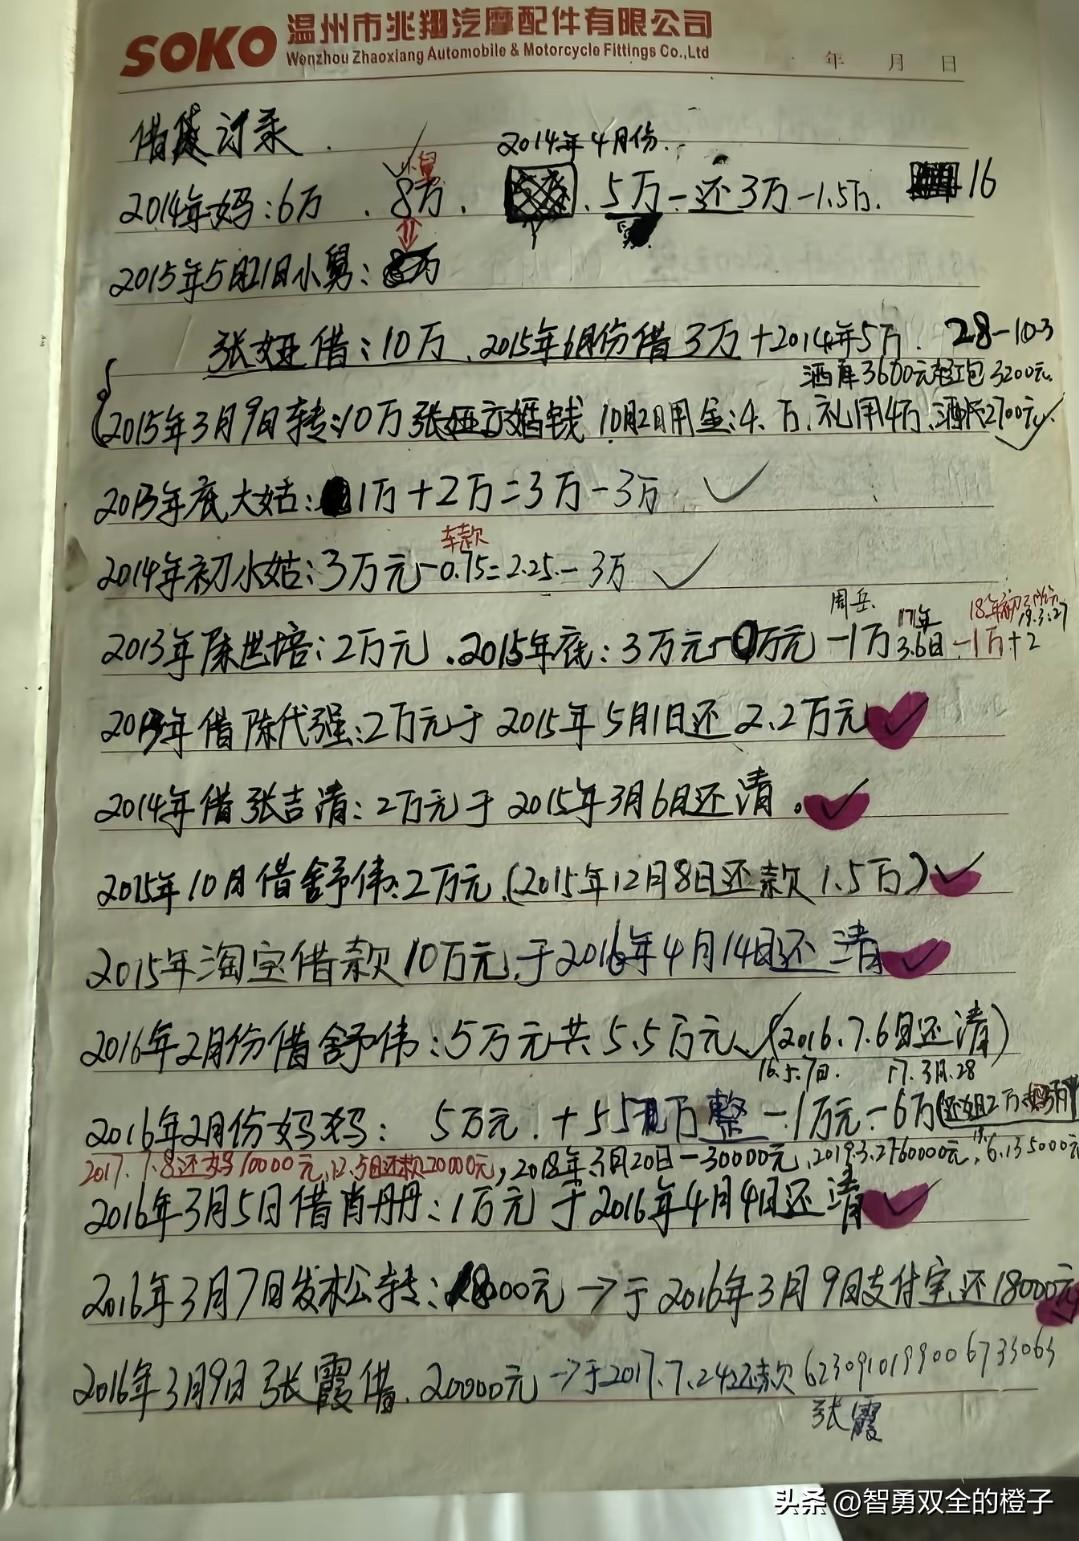 SOKO 温州市兆翔汽摩配件有限公司
Wenzhou Zhaoxiang Automobile & Motorcycle Fittings Co.,Ltd
年 月 日
借贷记录.
2014年4月份.
小舅
2014年妈:6万 . 8万. . 5万-还3万-1.5万. 16
2015年5月21日小舅:
张娅借:10万、2015年6月份借3万+2014年5万. 28-10-3
酒席3600元 红包3200元
2015年3月9日转:10万张娅 婚钱 10月2日用金:4.万.礼用4万.酒 2700元
2013年底大姑: 1万+2万=3万-3万
车款
2014年初小姑:3万元-0.75=2.25-3万
周岳. 17年 18年初 19.3.27
2013年陈世培:2万元.2015年底:3万元- 万元-1万 3.6日-1万+2
年借陈代强:2万元于2015年5月1日还2.2万元
2014年借张吉清:2万元于2015年3月6日还清.
2015年10月借舒伟:2万元.(2015年12月8日还款1.5万)
2015年淘宝借款10万元.于2016年4月14日还清
2016年2月份借舒伟:5万元共5.5万元 (2016.7.6日还清)
16.5.7日. 17.3月.28
2016年2月份妈妈: 5万元.+5 万整-1万元-6万(还姐2万
2017. .8还妈10000元,12.5日还款20000元,2018年3月20日-30000元.2019.3.27 60000元, 6.13 5000元
2016年3月5日借肖丹丹:1万元于2016年4月4日还清
2016年3月7日发松转:18000元→于2016年3月9日支付宝还18000元
2016年3月9日张霞借.20000元→于2017.7.24还款 6230910199006733063
张霞
头条 @智勇双全的橙子